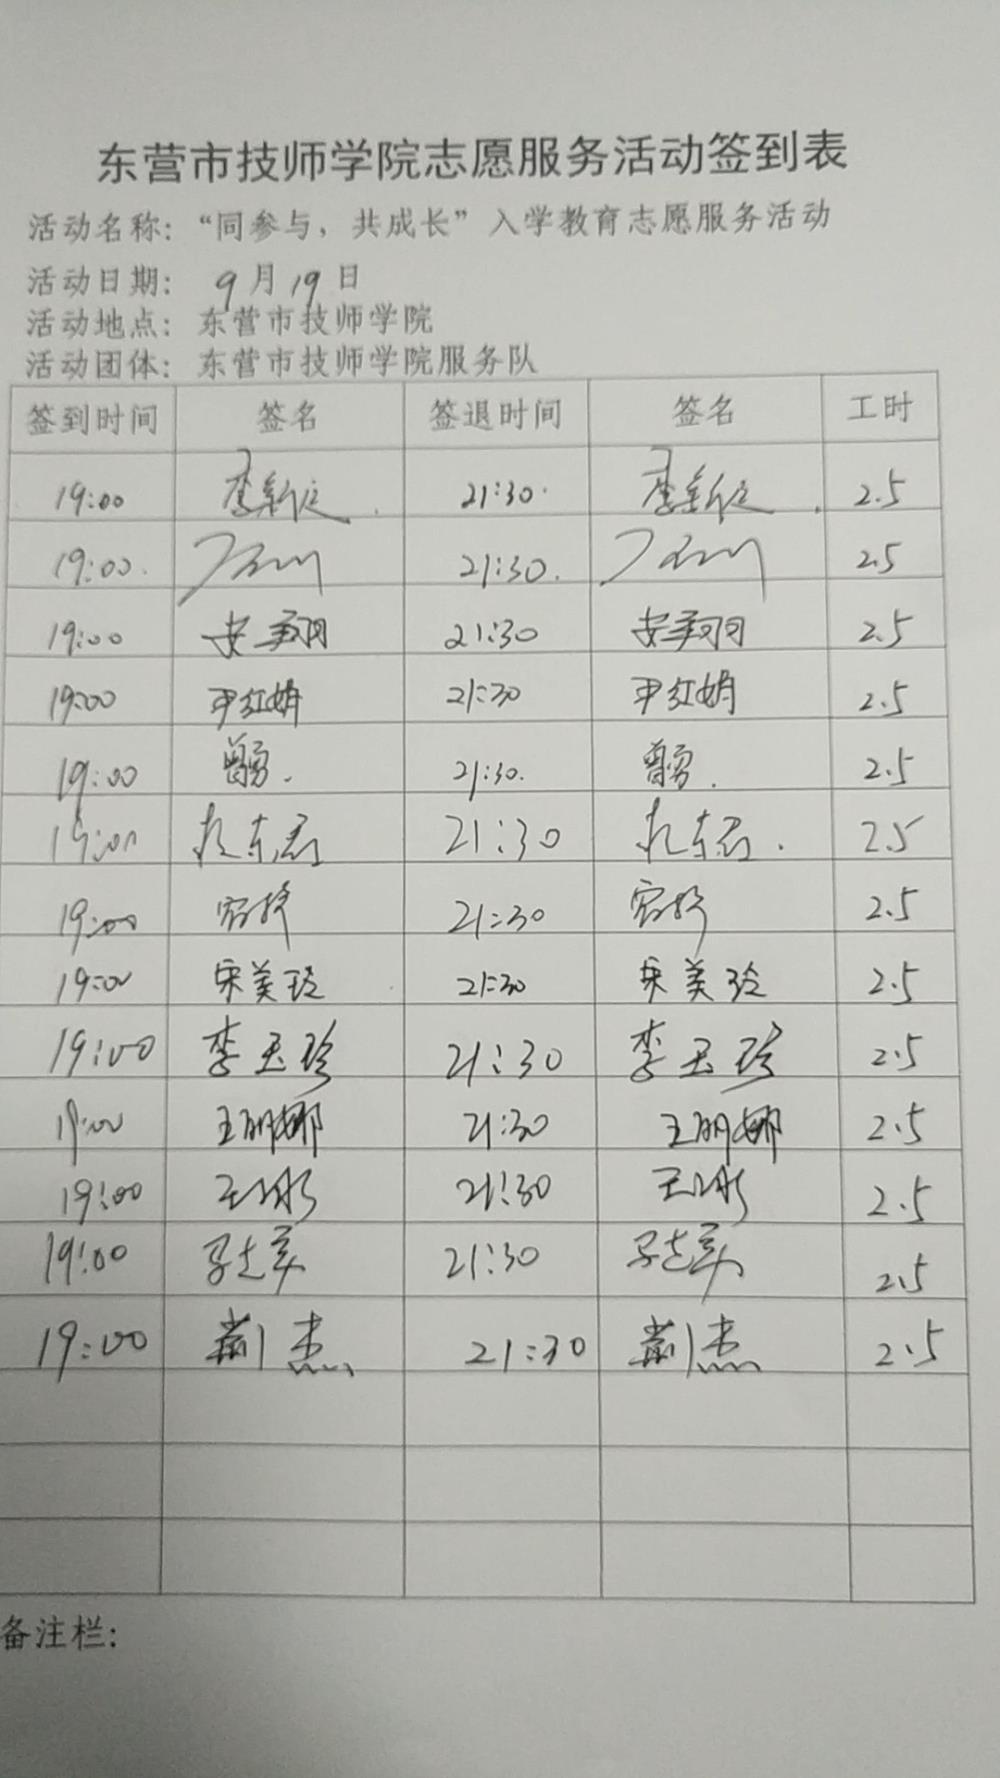 东营市技师学院志愿服务活动签到表
活动名称：“同参与，共成长”入学教育志愿服务活动
活动日期： 9月19日
活动地点： 东营市技师学院
活动团体： 东营市技师学院服务队
签到时间 签名 签退时间 签名 工时
19:00 21:30 2.5
19:00 21:30 2.5
19:00 安翔 21:30 安翔 2.5
19:00 尹红娟 21:30 尹红娟 2.5
19:00 21:30 2.5
19:00 21:30 2.5
19:00 21:30 2.5
19:00 宋美玲 21:30 宋美玲 2.5
19:00 李玉珍 21:30 李玉珍 2.5
19:00 王明娜 21:30 王明娜 2.5
19:00 21:30 2.5
19:00 21:30 2.5
19:00 荆杰 21:30 荆杰 2.5
备注栏：